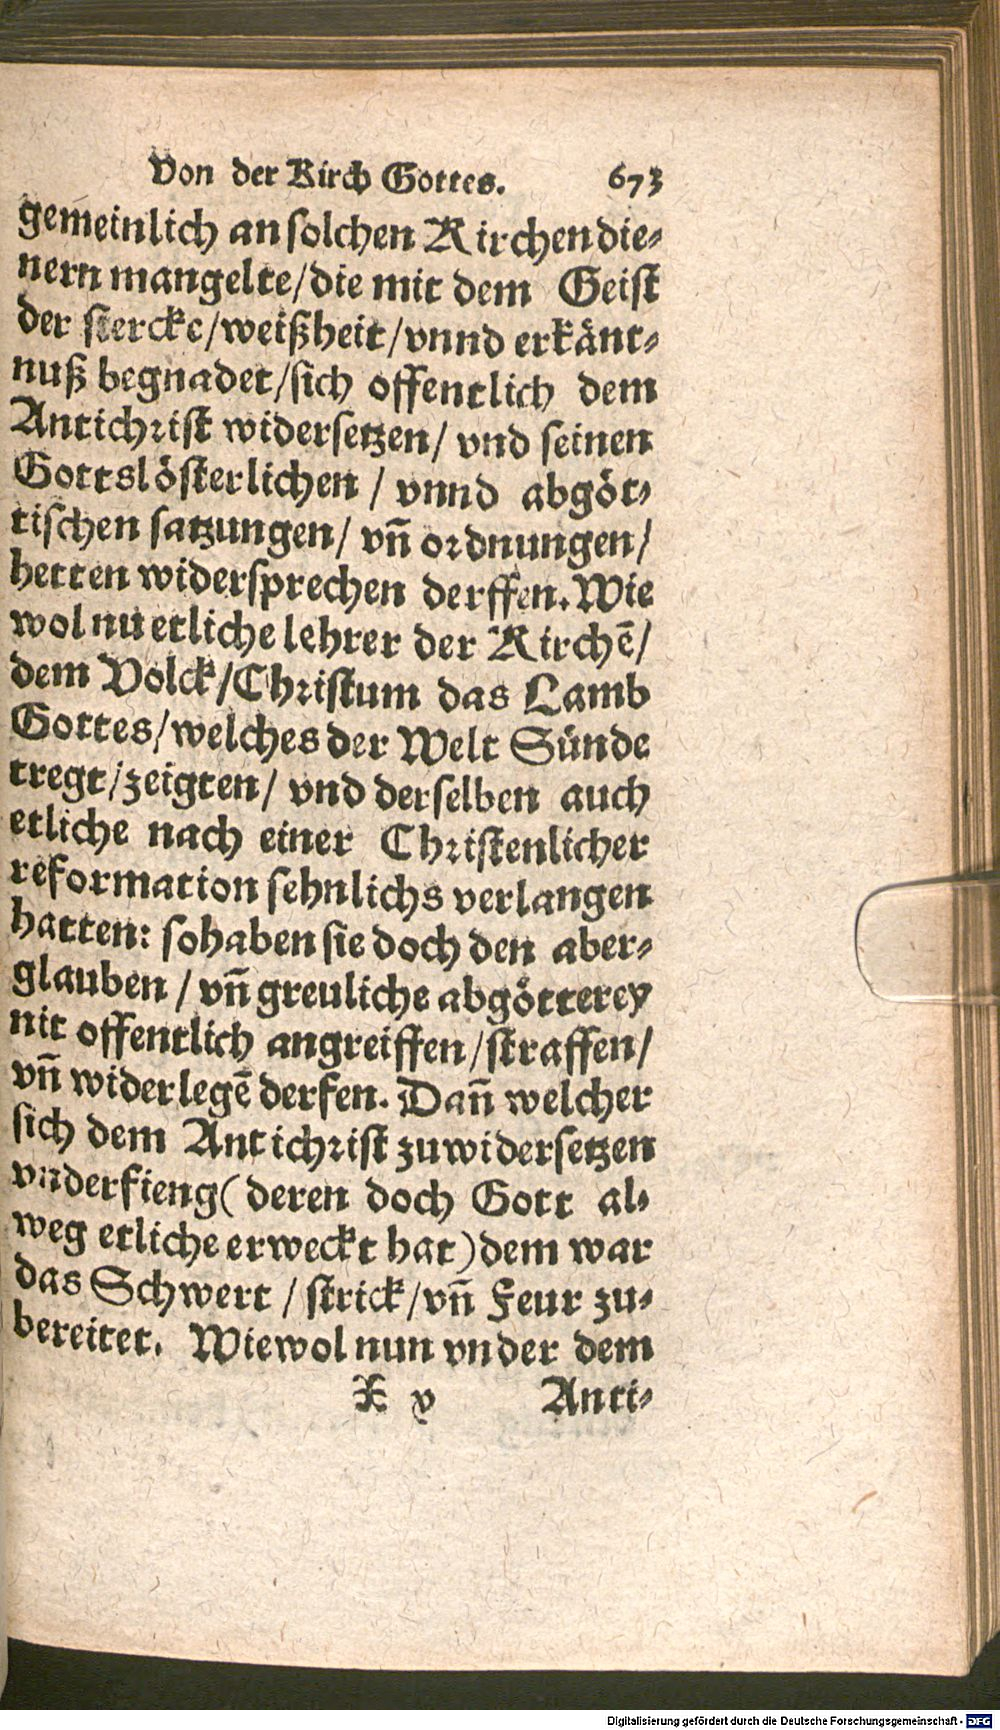 Von der Kirch Gottes. 673
gemeinlich an solchen Kirchendie⸗
nern mangelte/die mit dem Geist
der stercke/weißheit/vnnd erkänt⸗
nuß begnadet/sich offentlich dem
Antichrist widersetzen/ vnd seinen
Gottslösterlichen / vnnd abgöt⸗
tischen satzungen/ vñ ordnungen/
hetten widersprechen derffen. Wie
wol nu etliche lehrer der Kirchē/
dem Volck/Christum das Lamb
Gottes/welches der Welt Sünde
tregt/zeigten/ vnd derselben auch
etliche nach einer Christenlicher
reformation sehnlichs verlangen
hatten: so haben sie doch den aber⸗
glauben / vñ greuliche abgötterey
nit offentlich angreiffen/straffen/
vñ widerlegē derfen. Dañ welcher
sich dem Antichrist zuwidersetzen
vnderfieng( deren doch Gott al⸗
weg etliche erweckt hat) dem war
das Schwert / strick/vñ Feur zu⸗
bereitet. Wiewol nun vnder dem
X v Anti⸗
Digitalisierung gefördert durch die Deutsche Forschungsgemeinschaft - DFG